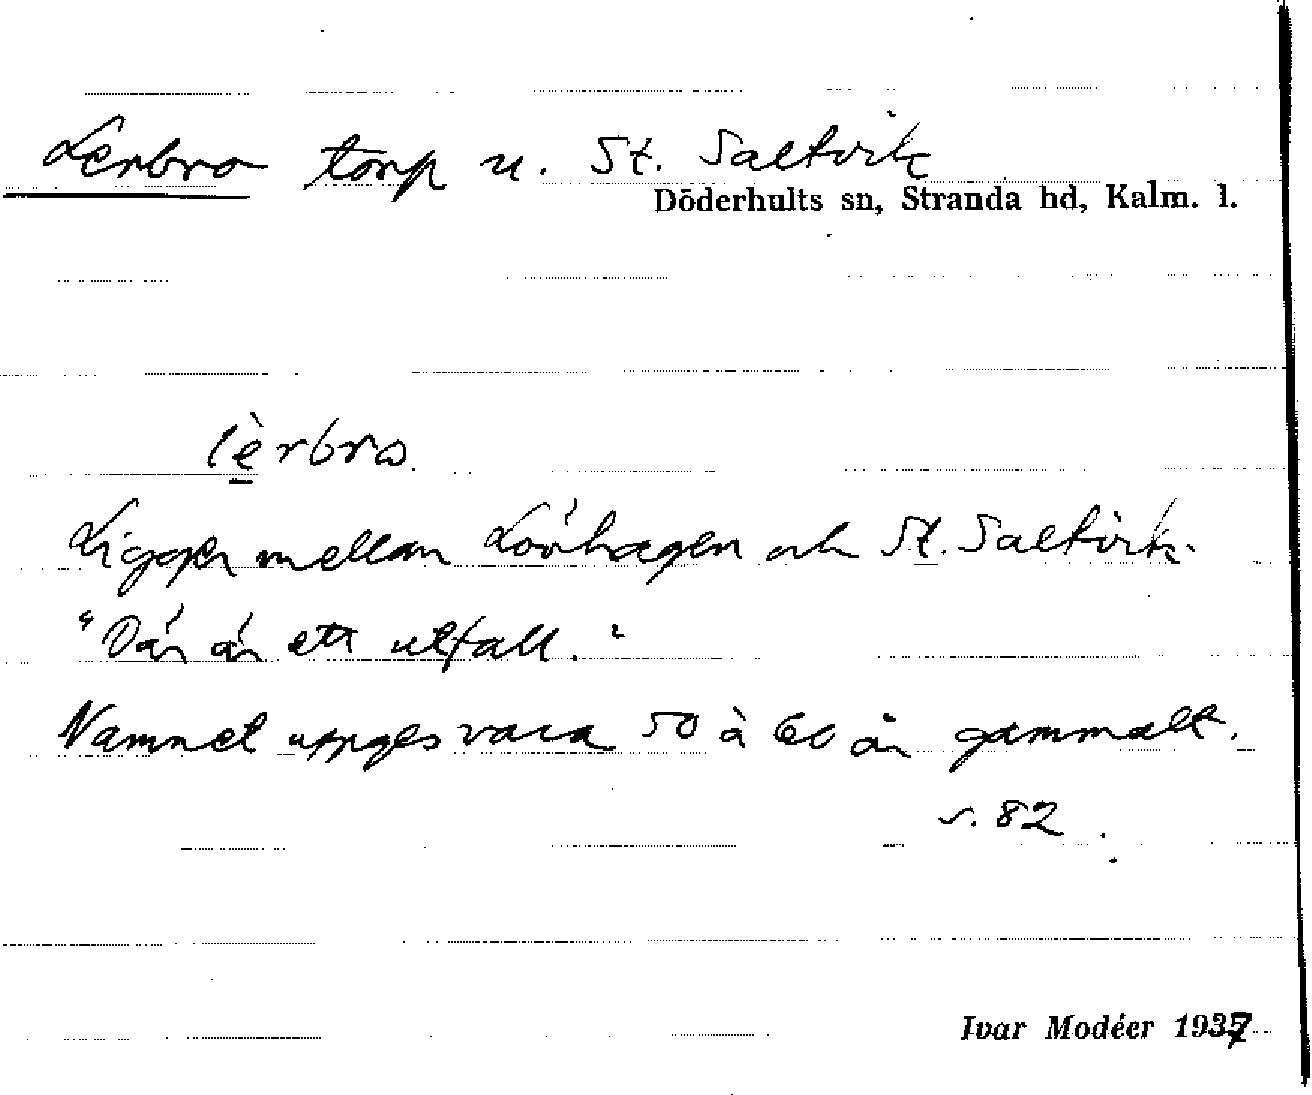 Lerbro torp u. St. Saltvik
Döderhults sn, Stranda hd, Kalm. l.
lèrbro.
Ligger mellan Lövhagen och St. Saltvik.
"Där är ett utfall."
Namnet uppges vara 50 à 60 år gammalt.
s. 82
Ivar Modéer 1937